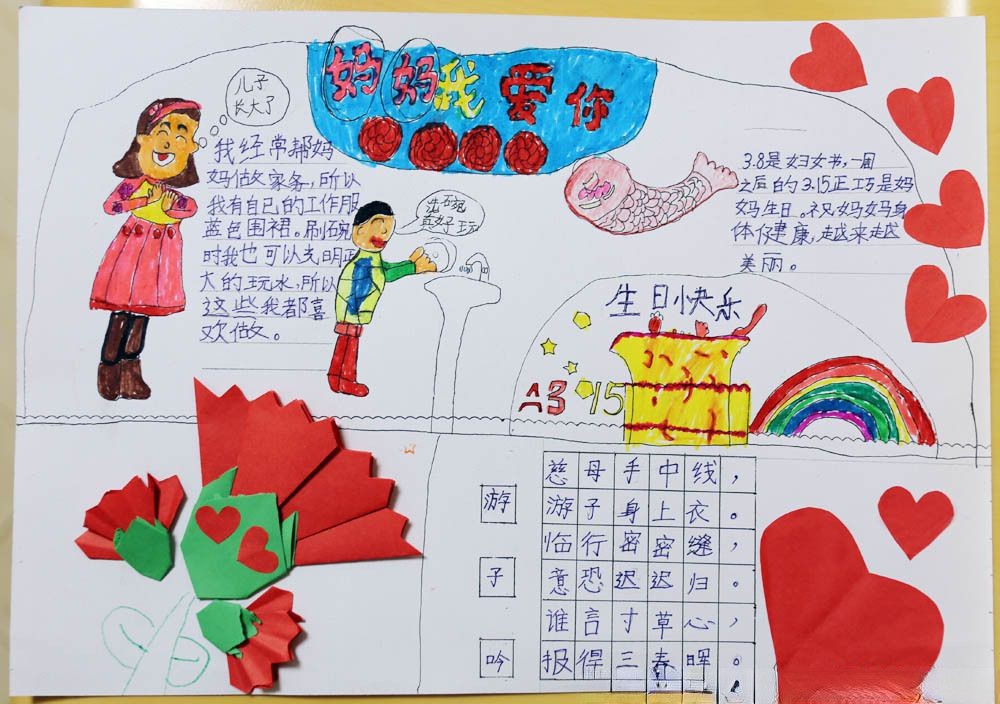 妈妈我爱你
儿子
长大了
我经常帮妈
妈做家务,所以
我有自己的工作服
蓝色围裙。刷碗
时我也可以光明正
大的玩水,所以
这些我都喜
欢做。
洗碗
真好玩
3.8是妇女书,一周
之后的3.15正巧是妈
妈生日。祝妈妈身
体健康,越来越
美丽。
生日快乐
3 15
游
子
吟
慈母手中线,
游子身上衣。
临行密密缝,
意恐迟迟归。
谁言寸草心,
报得三春晖。